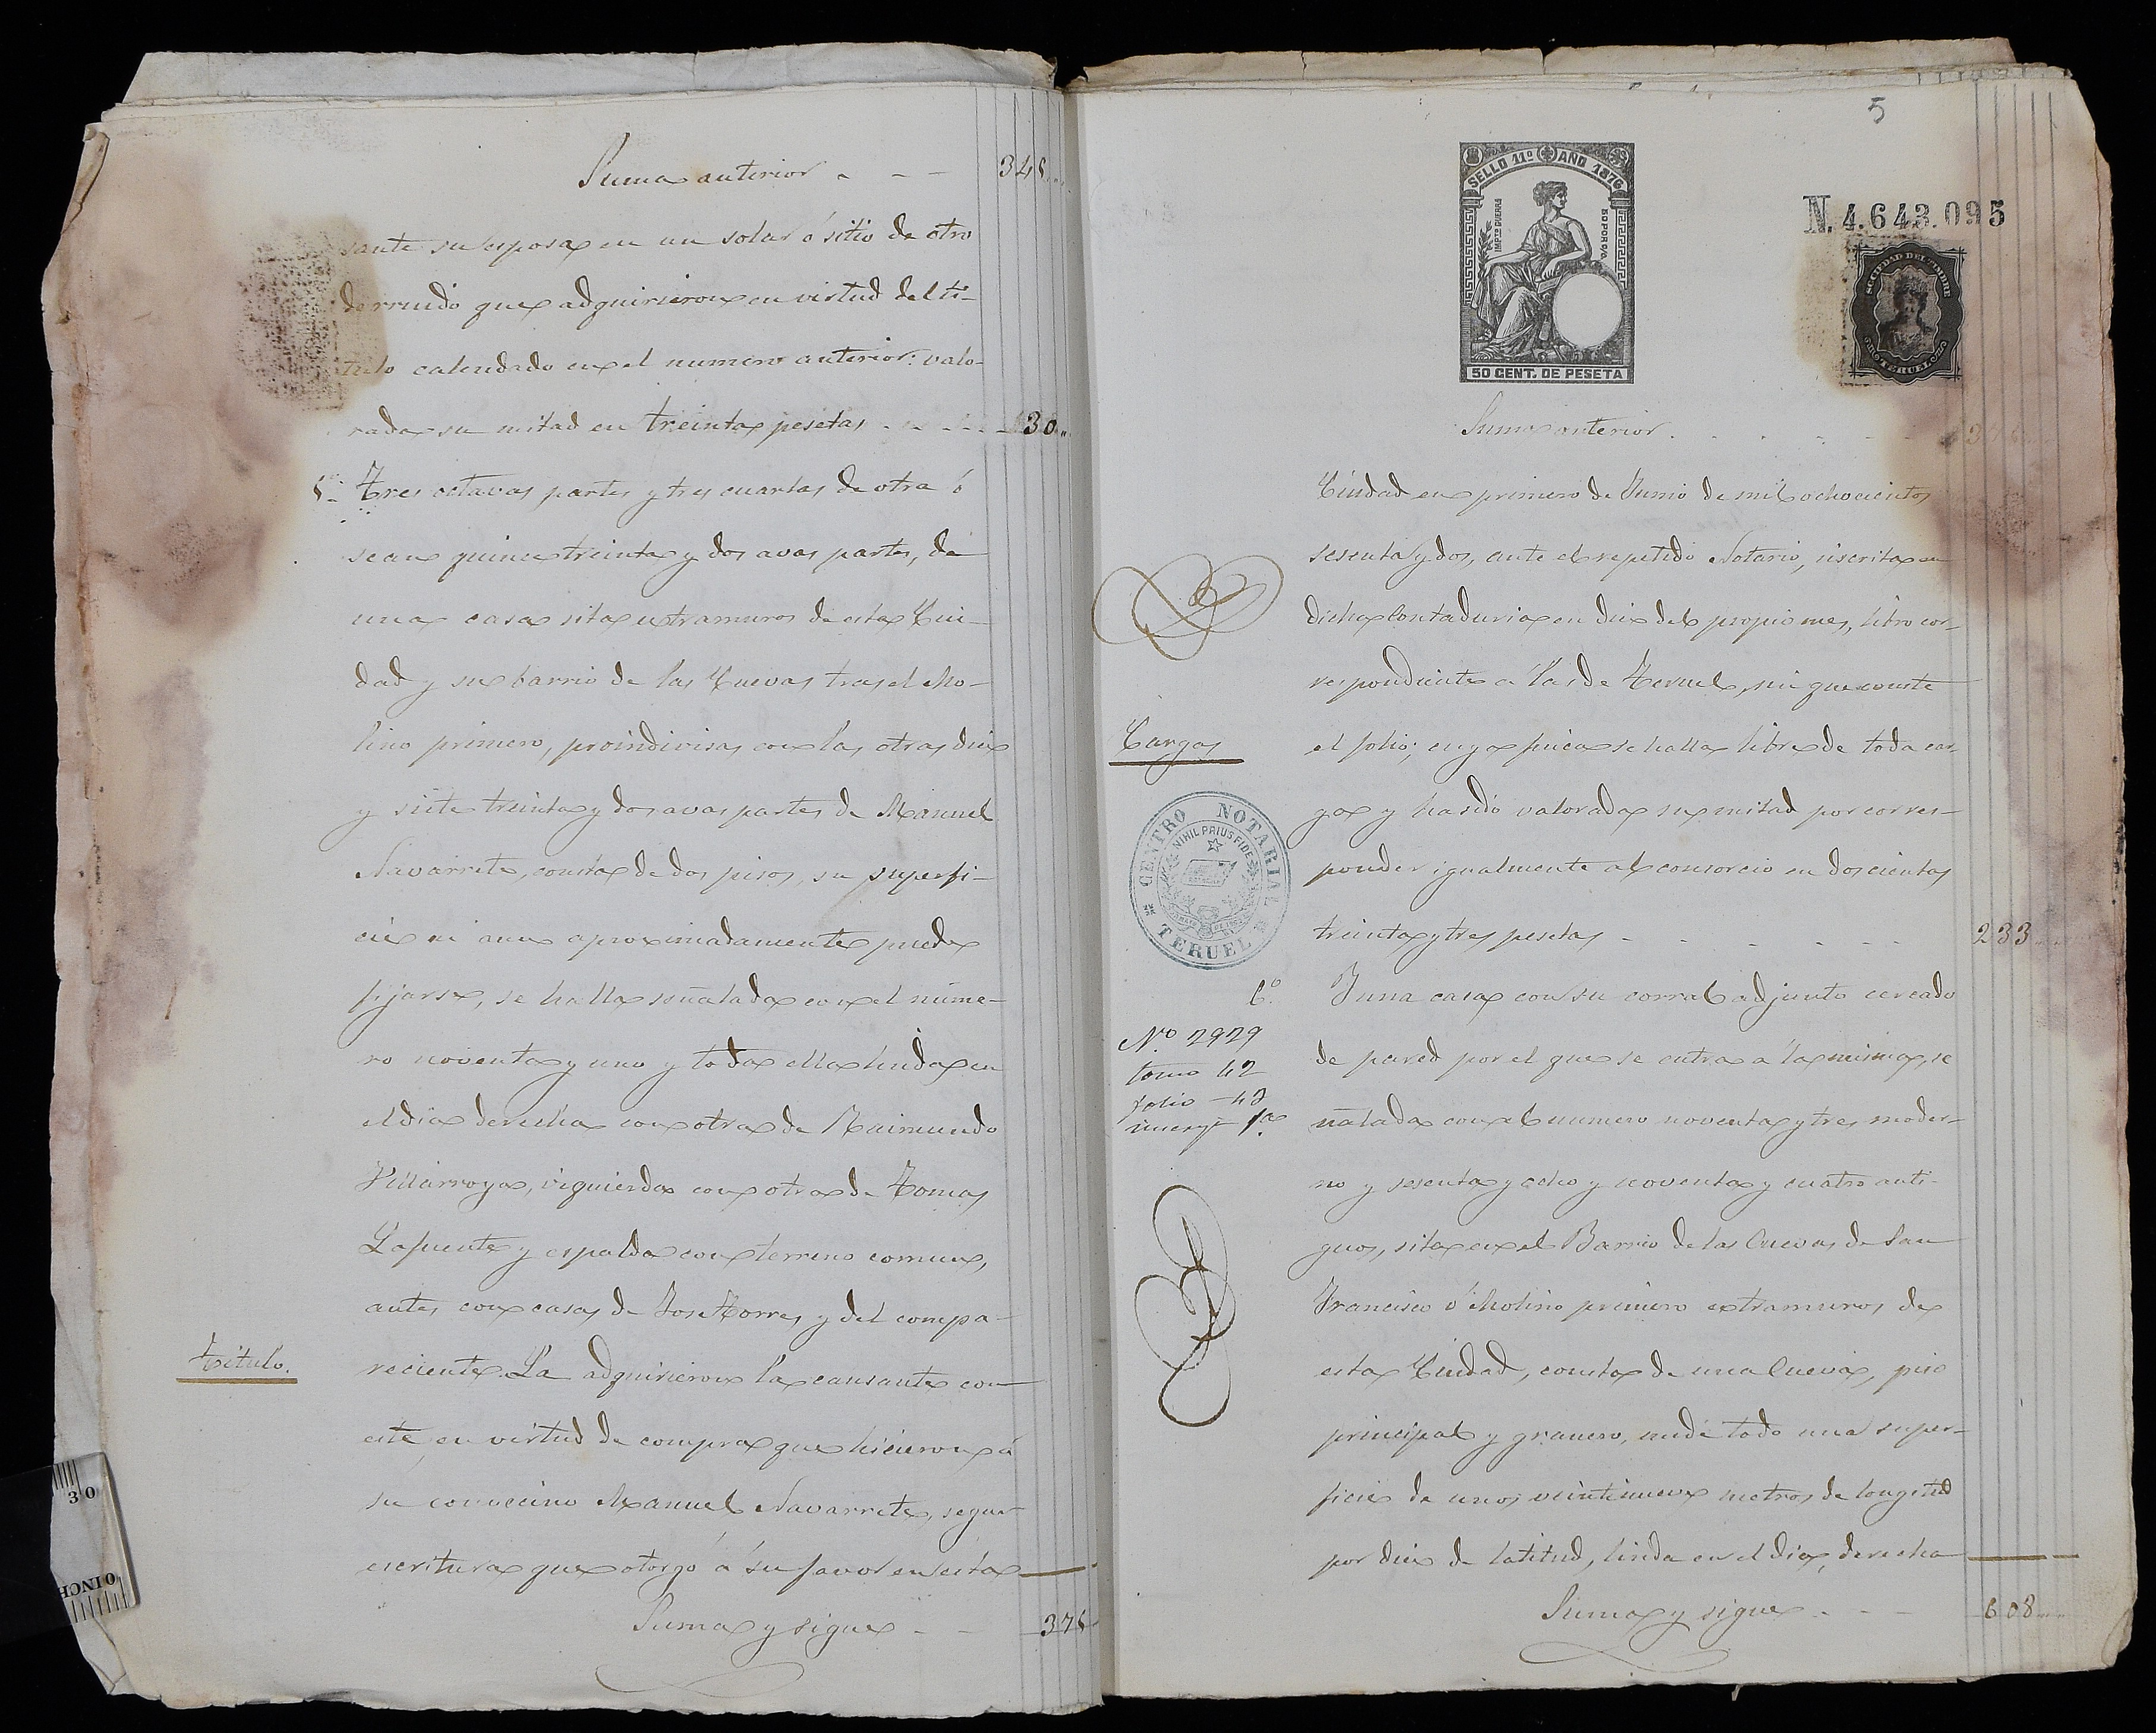 Suma anterior - - - 345
sante su esposa en un solar ó sitio de otro
derruido que adquirieron en virtud del tí-
tulo calendado en el numero anterior: valo-
rada su mitad en treinta pesetas - - - 30
5º Tres octavas partes y tres cuartas de otra ó
sean quince treinta y dos avas partes, de
una casa sita extramuros de esta Ciu-
dad y su barrio de las Cuevas tras el Mo-
lino primero, proindivisas con las otras diez
y siete treinta y dos avas partes de Manuel
Navarrete, consta de dos pisos, su superfi-
cie ni aun aproximadamente puede
fijarse, se halla señalada con el núme-
ro noventa y uno y toda ella linda en
el dia derecha con otra de Raimundo
Villarroya, izquierda con otra de Tomas
Lafuente y espalda con terreno comun,
antes con casas de Jose Torres y del compa-
Título.
reciente. La adquirieron la causante con
este, en virtud de compra que hicieron á
su convecino Manuel Navarrete, segun
escritura que otorgó á su favor en esta
Suma y sigue - - 375
5
SELLO 11º AÑO 1876
IMPTO DE GUERRA
50 POR 0/0
50 CENT. DE PESETA
N. 4.643.095
SOCIEDAD DEL TIMBRE
TERUEL
Suma anterior - - - 375
Ciudad en primero de Junio de mil ochocientos
sesenta y dos, ante el repetido Notario, inscrita en
dicha Contaduria en diez del propio mes, libro cor-
respondiente á las de Teruel, sin que conste
Cargas
el folio; cuya finca se halla libre de toda car-
ga y ha sido valorada su mitad por corres-
ponder igualmente al consorcio en doscientas
treinta y tres pesetas - - - 233
CENTRO NOTARIAL
NIHIL PRIUS FIDE
TERUEL
6º. Y una casa con su corral adjunto cercado
Nº 2929
tomo 42
folio 43
inscrip 1ª
de pared por el que se entra á la misma, se
ñalada con el numero noventa y tres moder-
no y sesenta y ocho y noventa y cuatro anti-
guos, sita en el Barrio de las Cuevas de San
Francisco ó Molino primero extramuros de
esta Ciudad, consta de una Cueva, piso
principal y granero, mide todo una super-
ficie de unos veintinueve metros de longitud
por diez de latitud, linda en el dia, derecha
Suma y sigue - - - 608